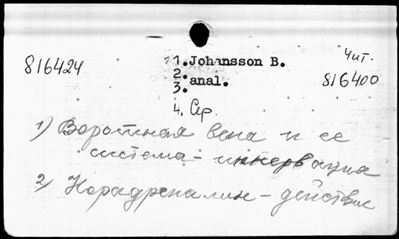 816424
1. Johansson B.
2. anal.
3.
4. Ср.
Чит.
816400
1) Воротная вена и ее
система - иннервация
2) Норадреналин - действие